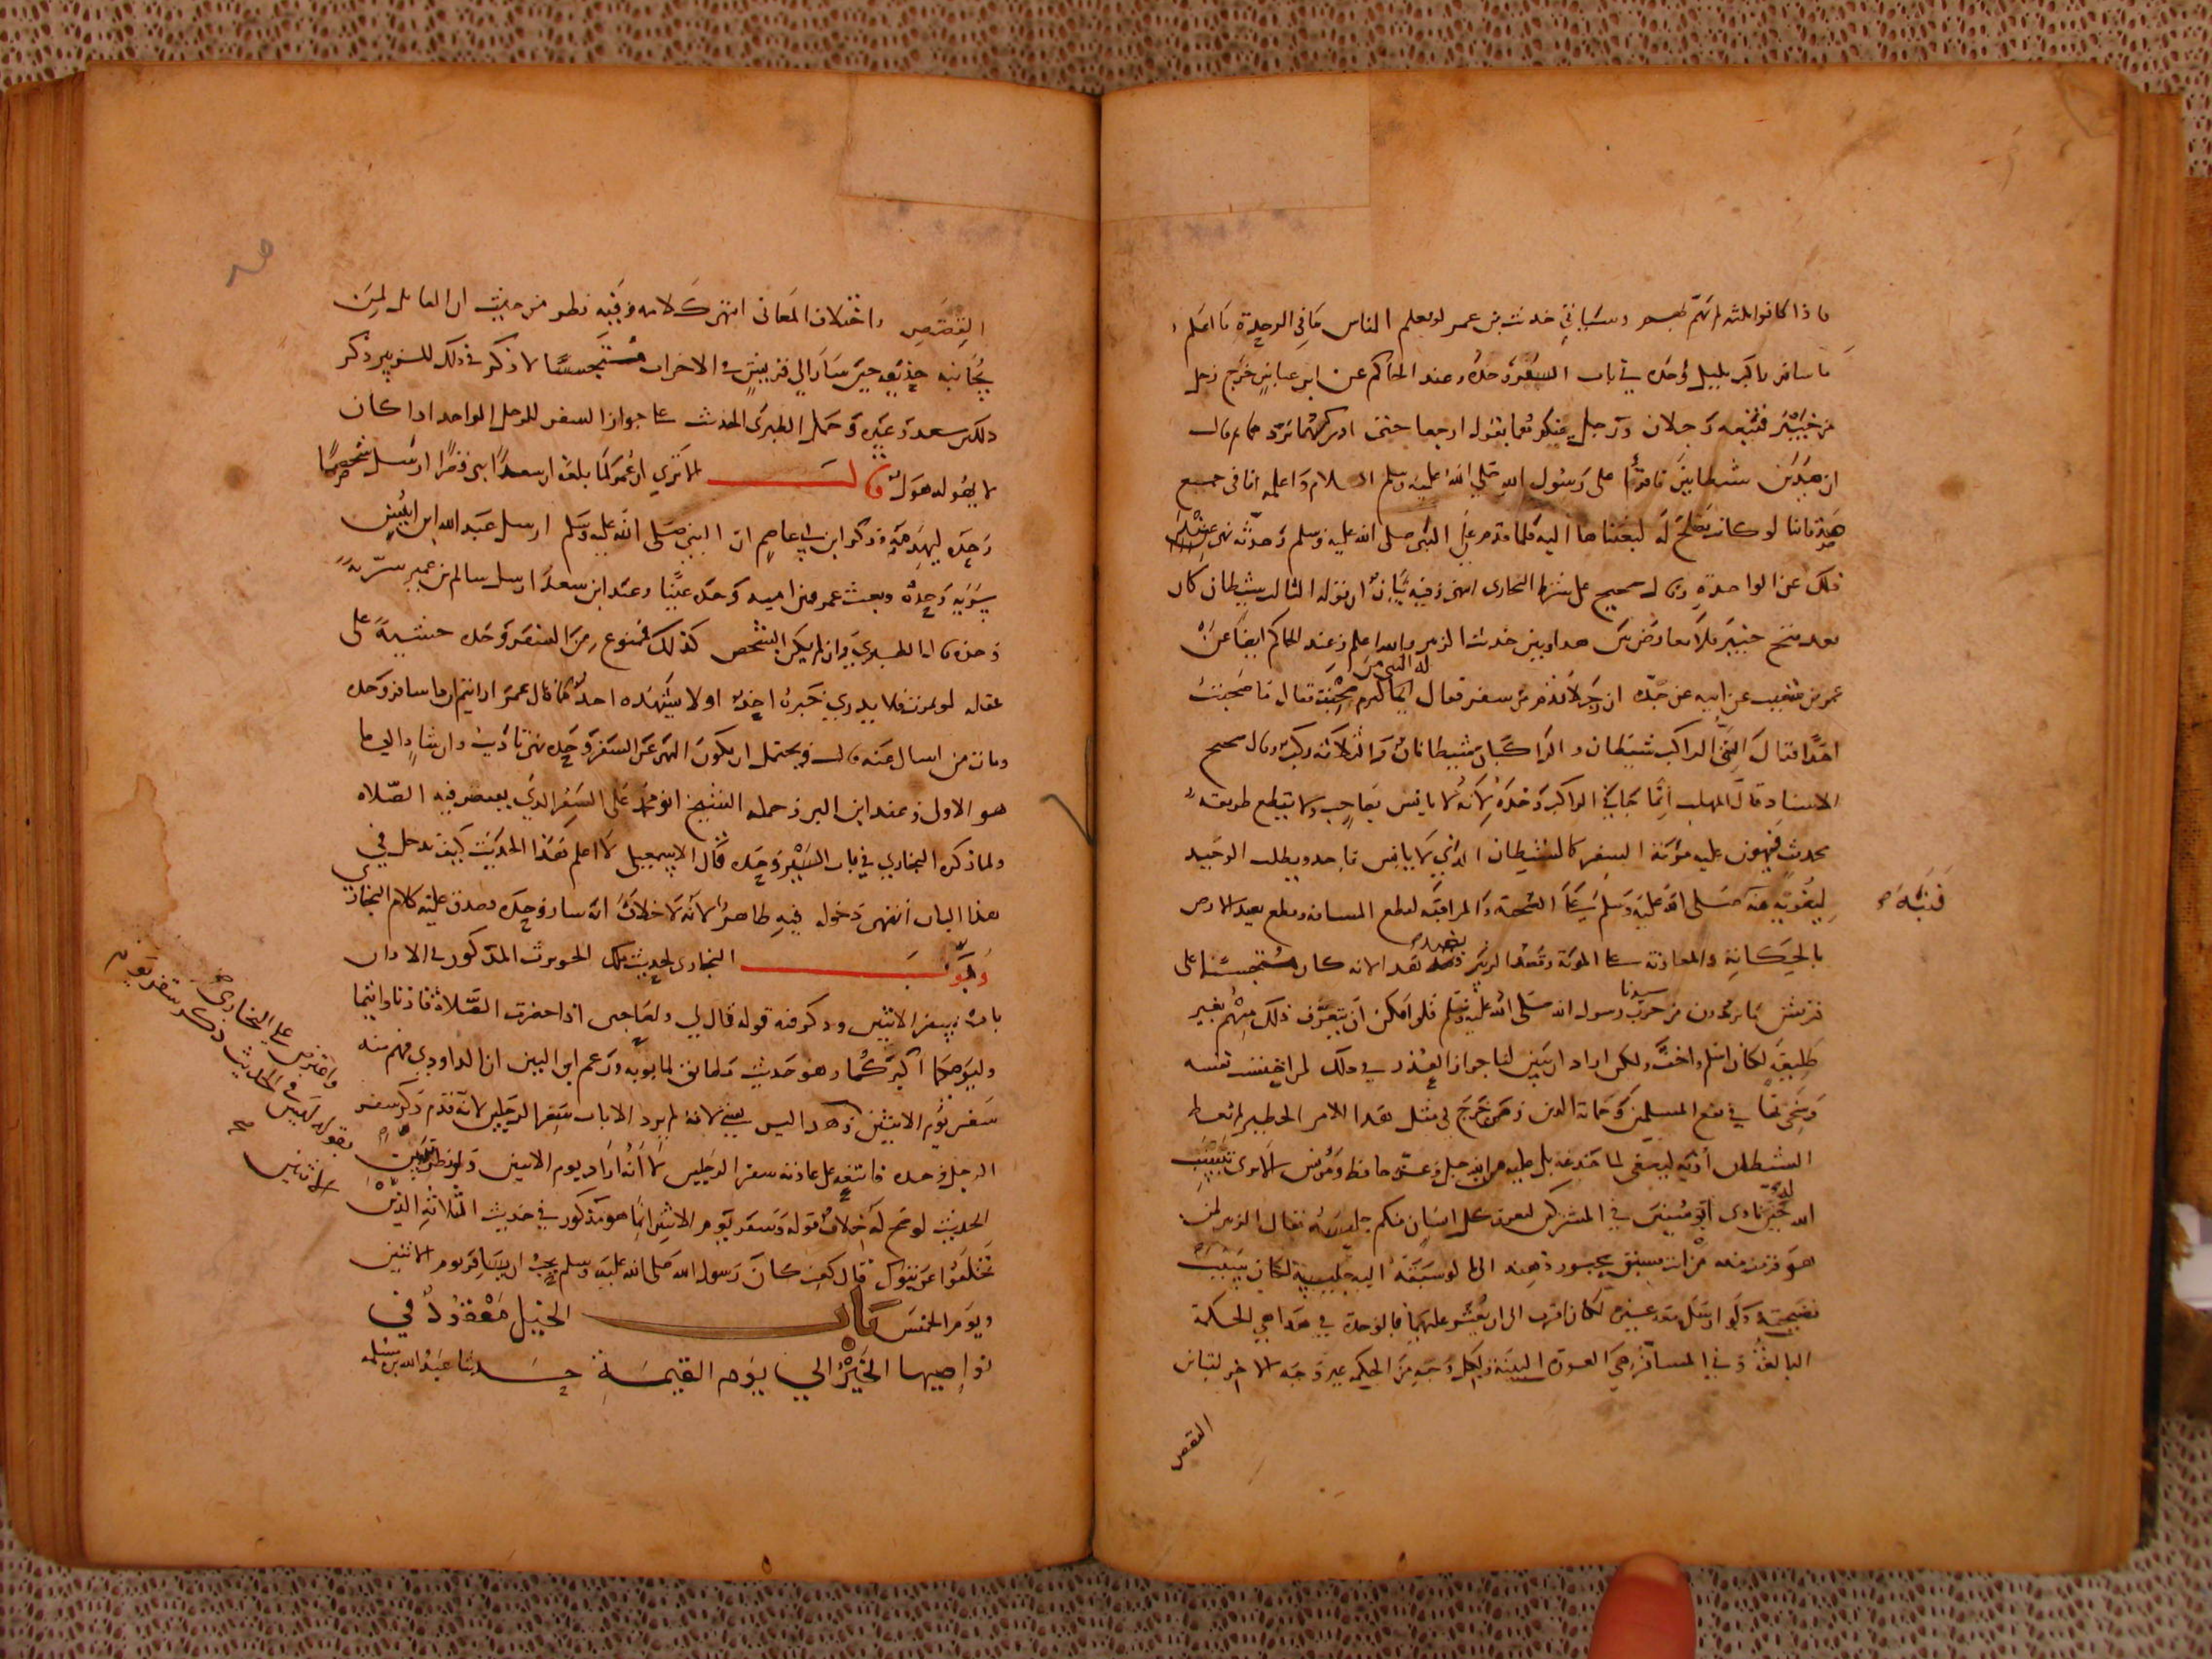 ماذا كانوا ثلثه لم تهم بهم وسياتي حديث بن عمر لو يعلم الناس ما في الوحدة ما اعلم
ما سافر راكب بليل وحده في باب السفر وحده وعند الحاكم عن ابن عباس خرج رجل
من خيبر فتبعه رجلان ورجل يتلوهما يقول ارجعا حتى ادركهما فردهما ثم قال
ان هذين شيطانين فاقرا على رسول الله صلى الله عليه وسلم السلام واعلمه انا في جمع
صدقاتنا لو كانت تصلح له لبعثنا بها اليه فلما قدم على النبي صلى الله عليه وسلم وحدثه نهى عند
ذلك عن الواحدة وقال صحيح على شرط البخاري انتهى وفيه بيان ان قوله الثالث شيطان كان
بعد فتح خيبر فلا معارضة بين هذا وبين حديث الزبير والله اعلم وعند الحاكم ايضا عن
عمرو بن شعيب عن ابيه عن جده ان رجلا قدم من سفر فقال له النبي من صحبت فقال ما صحبت
احدا فقال النبي الراكب شيطان والراكبان شيطانان والثلاثة ركب وقال صحيح
الاسناد قال المهلب انما جاء في الراكب وحده لانه لا يانس بصاحب ولا يقطع طريقه
بحدث فيهون عليه مؤنة السفر كالشيطان الذي لا يانس باحد ويطلب الوحيد
ليغويه فنبه صلى الله عليه وسلم على الصحبة والمرافقة لقطع المسافه وقطع بعيد الارض
بالحكاية والمعاونة على المؤنة وقصد الزبير بضد هذا لانه كان متجسسا على
قريش ما يريدون من حرب سيدنا رسول الله صلى الله عليه وسلم فلو امكن ان يتعرف ذلك منهم بغير
طليقة لكان اسلم واخف ولكن اراد ان يبين لنا جواز الغرر في ذلك لمن احتسب نفسه
وسخى بها في نفع المسلمين وحماية الدين ومن خرج في مثل هذا الامر الخطير لم يعط
الشيطان اذنه ليصغى الى خدعه بل عليه من الله جل وعز حافظ ومؤنس الا ترى تثبيت
الله له حين نادى ابو سفين في المشركين ليعرف كل انسان منكم جليسه فقال الزبير لمن
هو قريب منه من انت فسبق بحضور ذهنه الى ما لو سبقه اليه جليسه لكان سبب
فضيحته ولو ارسل معه غيره لكان اقرب الى ان يعثر عليهما فالوحدة في هذا هي الحكمة
البالغة وفي المسافر هي العورة البينة ولكل وجه من الحكمه غير وجه الاخر لتباين
القصص
القصص واختلاف المعاني انتهى كلامه وفيه نظر من حيث ان القايل لمن
بجانبه حذيفه حين سار الي قريش في الاحزاب متجسسا لا ذكر في ذلك للزبير ذكر
ذلك بن سعد وغيره وحمل الطبري الحديث على جواز السفر للرجل الواحد اذا كان
لا يهوله هول قال الا ترى ان عمر لما بلغه ان سعدا بنى قصرا ارسل شخصا
وحده ليهدمه وذكر ابن ابي عاصم ان النبي صلى الله عليه وسلم ارسل عبد الله ابن انيس
سرية وحده وبعث عمرو بن اميه وحده عينا وعند ابن سعد ارسل سالم بن عمير سرية
وحده قال الطبري فان لم يكن الشخص كذلك فممنوع من السفر وحده خشية على
عقله او يموت فلا يدري خبره احد او لا يشهده احد كما قال عمر ارايتم اذا سافر وحده
ومات من اسال عنه قال ويحتمل ان يكون النهي عن السفر وحده نهي تاديب وارشاد الي ما
هو الاولى وعند ابن البر وحمله الشيخ ابو محمد على السفر الذي يقصر فيه الصلاه
ولما ذكره البخاري في باب السير وحده قال الاسمعيلي لا اعلم هذا الحديث كيف يدخل في
هذا الباب انتهى دخوله فيه ظاهر لانه لا خلاف انه سار وحده فصدق عليه كلام البخاري
وبوب البخاري لحديث ملك الحويرث المذكور في الاذان
باب سفر الاثنين وذكر فيه قوله قال لي ولصاحبي اذا حضرت الصلاة فاذنا واقيما
وليؤمكما اكبركما وهو حديث مطابق لما بوبه وزعم ابن التين ان الداودي فهم منه
سفر يوم الاثنين وهذا ليس يعني لانه لم يرد الا باب سفر الرجلين لانه قدم ذكر سفر
الرجل وحده فاتبعه على عادته سفر الرجلين لا انه اراد يوم الاثنين ولو نظر
الحديث لوضح له خلاف قوله وسفر يوم الاثنين انما هو مذكور في حديث الثلاثة الذين
تخلفوا عن تبوك قال كعب كان رسول الله صلى الله عليه وسلم يحب ان يسافر يوم الاثنين
ويوم الخميس باب الخيل معقود في
نواصيها الخير الى يوم القيمة حدثنا عبد الله بن مسلمه
واعترض على البخاري
بقوله ليس في الحديث ذكر سفر يوم
الاثنين